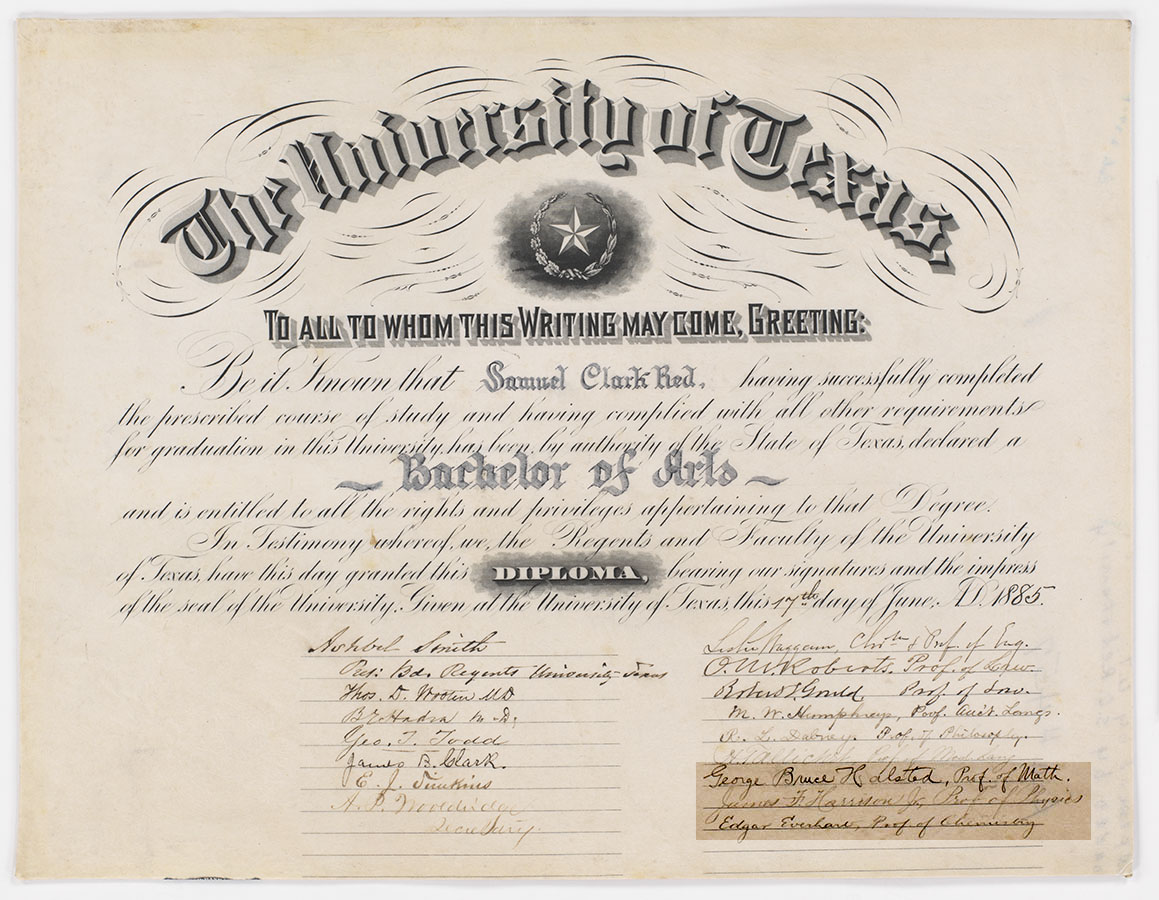 The University of Texas,
TO ALL TO WHOM THIS WRITING MAY COME, GREETING:
Be it Known that Samuel Clark Red, having successfully completed
the prescribed course of study and having complied with all other requirements
for graduation in this University, has been, by authority of the State of Texas, declared a
Bachelor of Arts
and is entitled to all the rights and privileges appertaining to that Degree.
In Testimony whereof, we, the Regents and Faculty of the University
of Texas, have this day granted this DIPLOMA, bearing our signatures and the impress
of the seal of the University. Given at the University of Texas, this 17th day of June, A.D. 1885.
Ashbel Smith
Pres. Bd. Regents University Texas
Thos. D. Wooten MD
B E Hadra M.D.
Geo. T. Todd
James B. Clark.
E. J. Simkins
A. P. Wooldridge
Secretary.
Leslie Waggener, Chrmn & Prof. of Eng.
O. M. Roberts. Prof. of Law.
Robert S. Gould Prof. of Law.
M. W. Humphreys, Prof. Anct. Langs.
R. L. Dabney Prof. of Philosophy.
George Bruce Halsted, Prof. of Math.
James F. Harrison Jr, Prof of Physics
Edgar Everhart, Prof of Chemistry